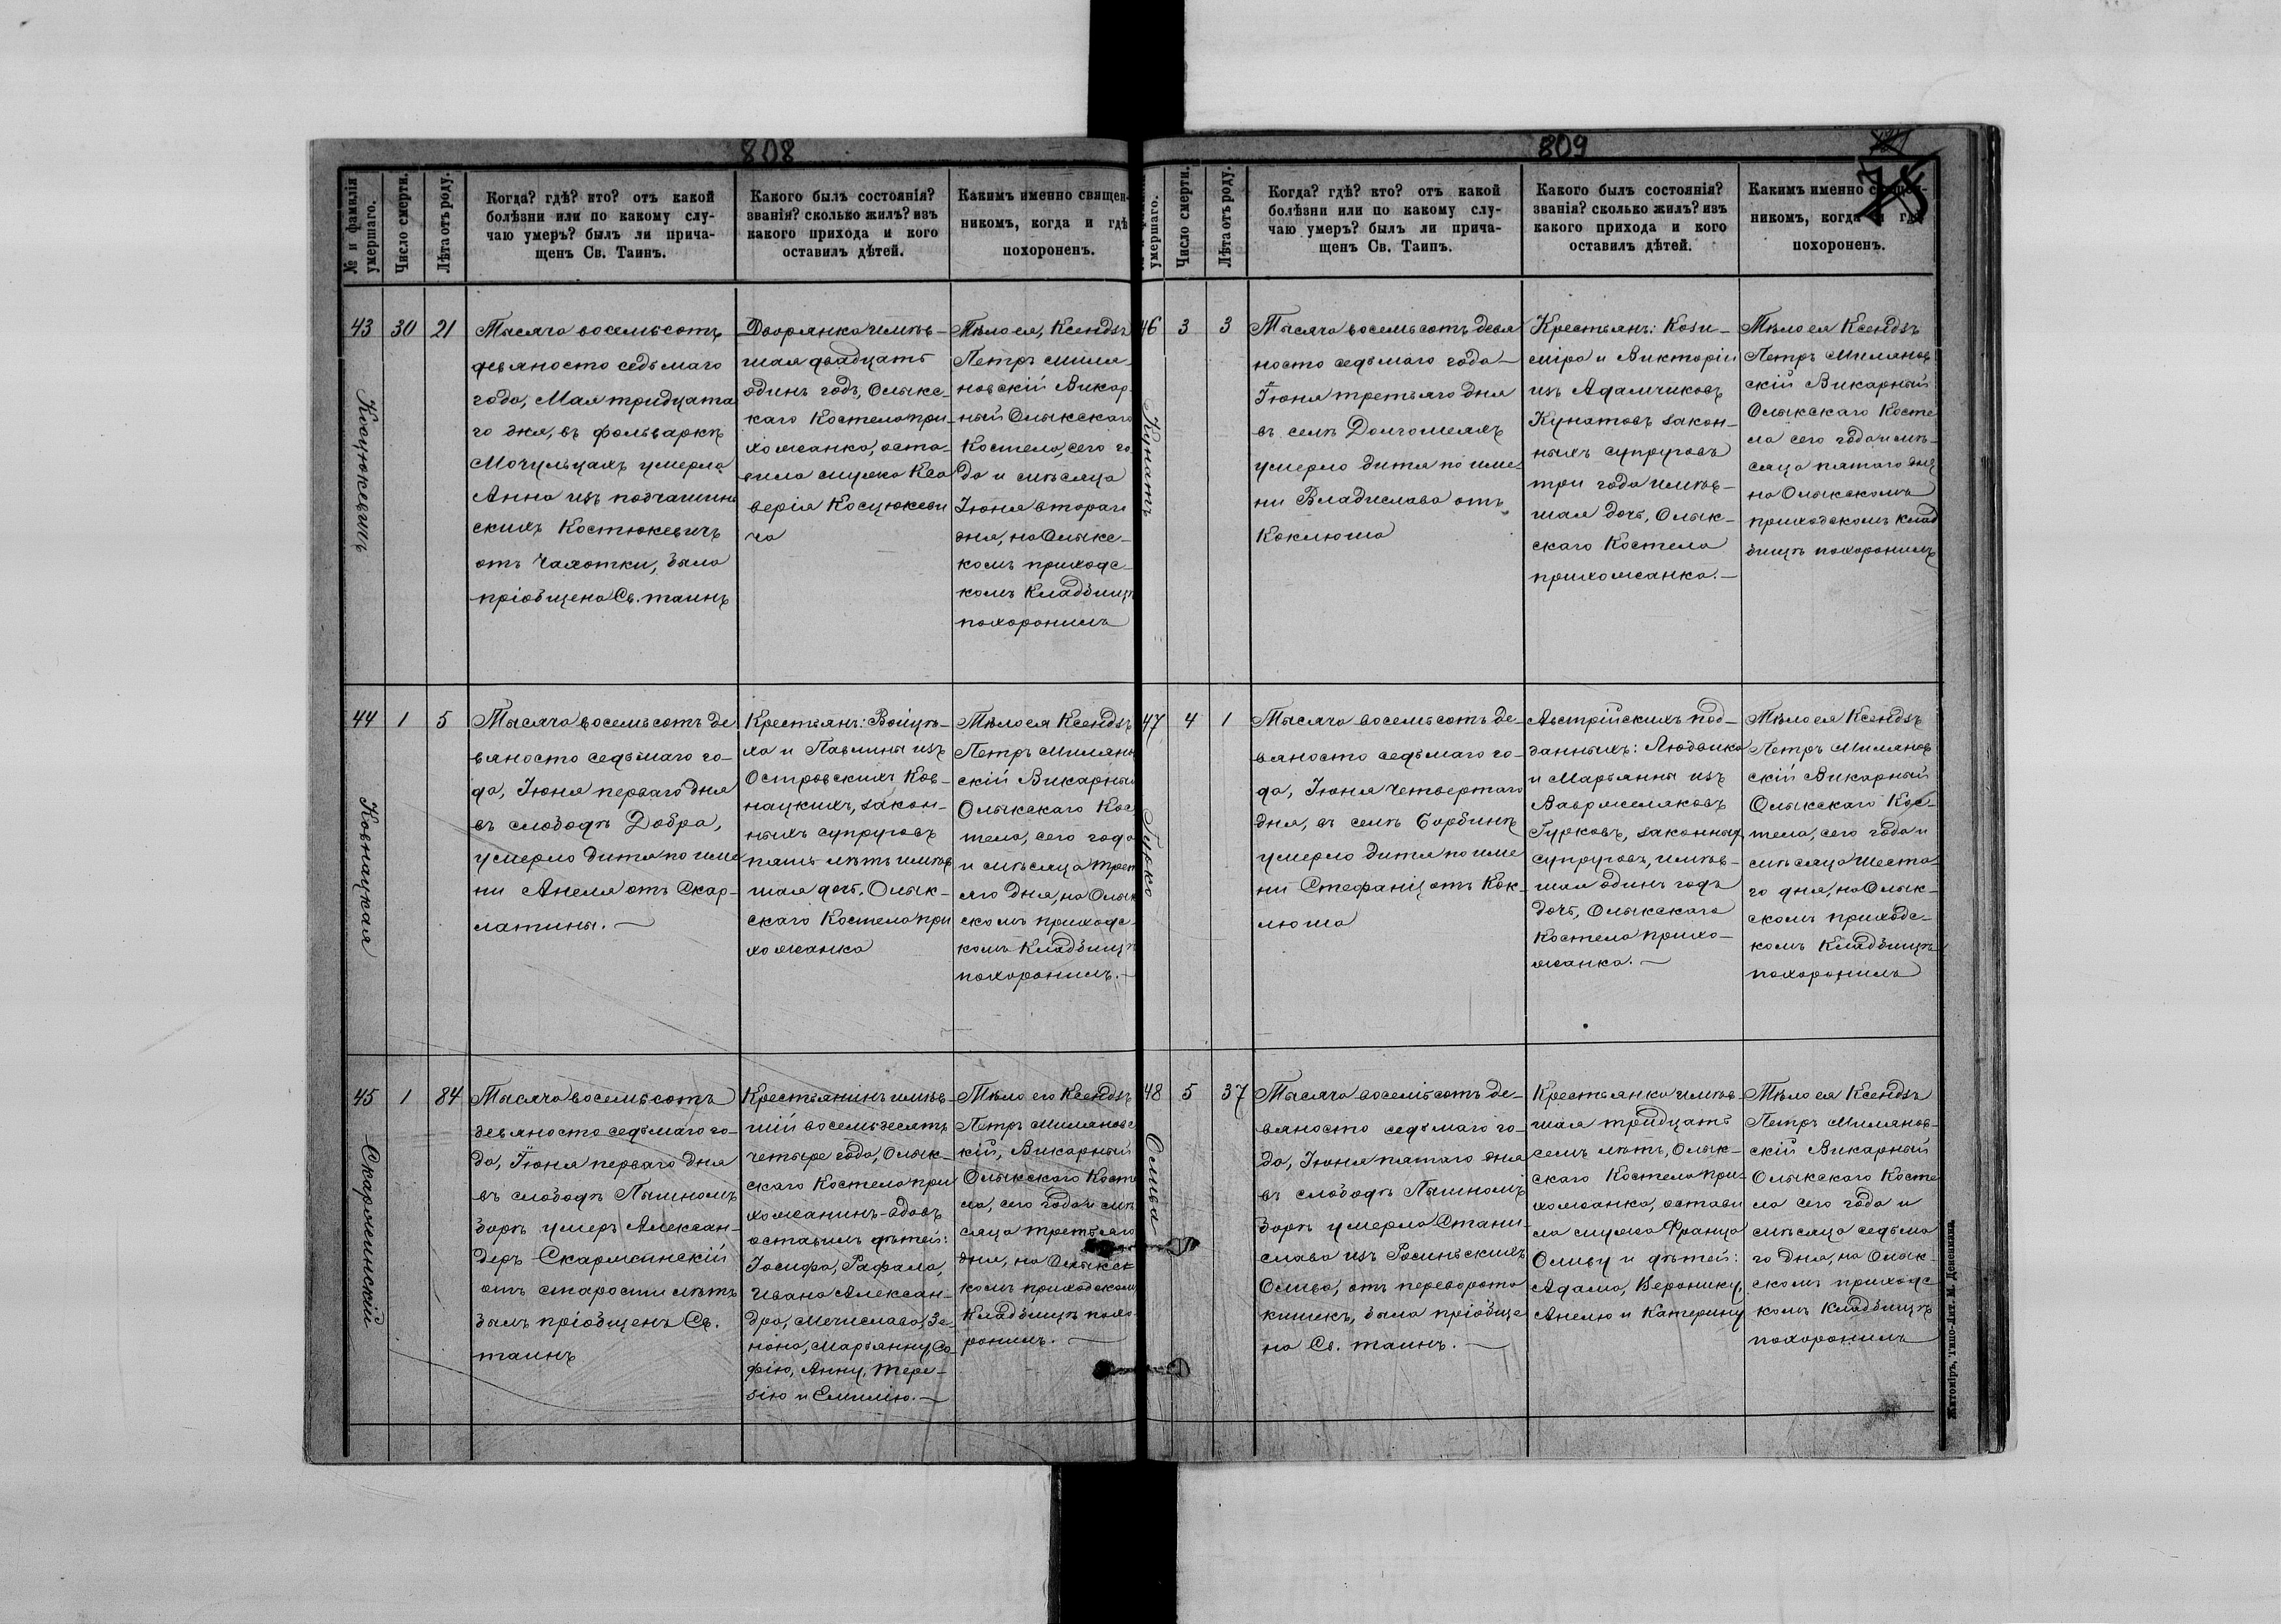 808
№ и фамилія
умершаго.
Число смерти.
Лѣта отъ роду.
Когда? гдѣ? кто? отъ какой
болѣзни или по какому слу-
чаю умеръ? былъ ли прича-
щенъ Св. Таинъ.
Какого былъ состоянія?
званія? сколько жилъ? изъ
какого прихода и кого
оставилъ дѣтей.
Какимъ именно священ-
никомъ, когда и гдѣ
похороненъ.
43
Коцюкевичъ
30
21
Тысяча восемьсотъ
девяносто седьмаго
года, Мая тридцата
го дня, въ фольваркѣ
Мочульцахъ умерла
Анна изъ
скихъ Костюкевичъ
отъ Чахотки, была
пріобщена Св. таинъ
Дворянка имѣв-
шая двадцать
одинъ годъ, Олыкс-
каго Костела при-
хожанка, оста-
вила мужа Кса
верія Косцюкеви
ча
Тѣло ея, Ксендзъ
Петръ Миля-
новскій Викар-
ный Олыкскаго
Костела, сего го
да и мѣсяца
Іюня втораго
дня, на Олыкс-
комъ приходс-
комъ Кладбищѣ
похоронилъ
44
Ковнацкая
1
5
Тысяча восемьсотъ де
вяносто седьмаго го-
да, Іюня перваго дня
въ слободѣ Добра,
умерло дитя по име
ни Анеля отъ Скар-
латины. —
Крестьянъ: Войцѣ-
ха и Павлины изъ
Островскихъ Ков-
нацкихъ, закон-
ныхъ супруговъ
пять лѣтъ имѣв
шая дочь, Олык-
скаго Костела при
хожанка
Тѣло ея Ксендзъ
Петръ Милянов
скій Викарный
Олыкскаго Кос
тела, сего года
и мѣсяца трет
яго дня, на Олык
скомъ приходс-
комъ Кладбищѣ
похоронилъ. —
45
Скаржинскій
1
84
Тысяча восемьсотъ
девяносто седьмаго го-
да, Іюня перваго дня
въ слободѣ Пышномъ
борѣ умеръ Алексан-
деръ Скаржинскій
отъ старости лѣтъ
былъ пріобщенъ Св.
таинъ
Крестьянинъ имѣв-
шій восемьдесятъ
четыре года, Олык-
скаго Костела при
хожанинъ-вдовъ
оставилъ дѣтей:
Іосифа, Рафала,
Ивана Алексан-
дра, Мечислава, Зе-
нона, Марьянну, Со
фію, Анну, Тере-
зію и Емилію. —
Тѣло его Ксендзъ
Петръ Милиновс
кій, Викарный
Олыкскаго Косте
ла, сего года и мѣ
сяца третьяго
дня, на Олыкск
комъ приходскомъ
Кладбищѣ похо
ронилъ. —
809
умершаго.
Число смерти.
Лѣта отъ роду.
Когда? гдѣ? кто? отъ какой
болѣзни или по какому слу-
чаю умеръ? былъ ли прича-
щенъ Св. Таинъ.
Какого былъ состоянія?
званія? сколько жилъ? изъ
какого прихода и кого
оставилъ дѣтей.
Какимъ именно священ-
никомъ, когда и гдѣ
похороненъ.
46
Кунатъ
3
3
Тысяча восемьсотъ девя
носто седьмаго года —
Іюня третьяго дня
въ селѣ Долгошеяхъ
умерло дитя по име
ни Владислава отъ
Коклюша
Крестьянъ: Кази-
міра и Викторіи
изъ Адамчиковъ
Кунатовъ закон-
ныхъ супруговъ
три года имѣв-
шая дочь, Олык-
скаго Костела
прихожанка. —
Тѣло ея Ксендзъ
Петръ Милянов
скій Викарный
Олыкскаго Косте
ла сего года и мѣ-
сяца пятаго дня
на Олыкскомъ
приходскомъ клад
бищѣ похоронилъ
47
Гурко
4
1
Тысяча восемьсотъ де-
вяносто седьмаго го-
да, Іюня Четвертаго
дня, въ селѣ Сорбинѣ
умерло дитя по име
ни Стефанія отъ Кок-
люша
Австрійскихъ под-
данныхъ: Людвика
и Марьянны изъ
Гурковъ, законныхъ
супруговъ, имѣв-
шая одинъ годъ
дочь, Олыкскаго
Костела прихо-
жанка. —
Тѣло ея Ксендзъ
Петръ Милянов
скій Викарный
Олыкскаго Кос-
тела, сего года и
мѣсяца шеста
го дня, на Олык-
скомъ приходс-
комъ Кладбищѣ
похоронилъ
48
Олива
5
37
Тысяча восемьсотъ де-
вяносто седьмаго го-
да, Іюня пятаго дня
въ слободѣ Пышномъ
борѣ умерла Стани-
слава изъ Росинскихъ
Олива, отъ переворота
кишекъ, была пріобще
на Св. таинъ. —
Крестьянка имѣв-
шая тридцать
семъ лѣтъ, Олык-
скаго Костела при-
хожанка, остави
ла мужа Франца
Оливу и дѣтей:
Адама, Веронику,
Анелю и Катерину
Тѣло ея Ксендзъ
Петръ Милянов-
скій Викарный
Олыкскаго Косте
ла сего года и
мѣсяца седьма
го дня, на Олык-
скомъ приходс
комъ Кладбищѣ
похоронилъ
Житоміръ, Типо-Лит. М. Дененмана